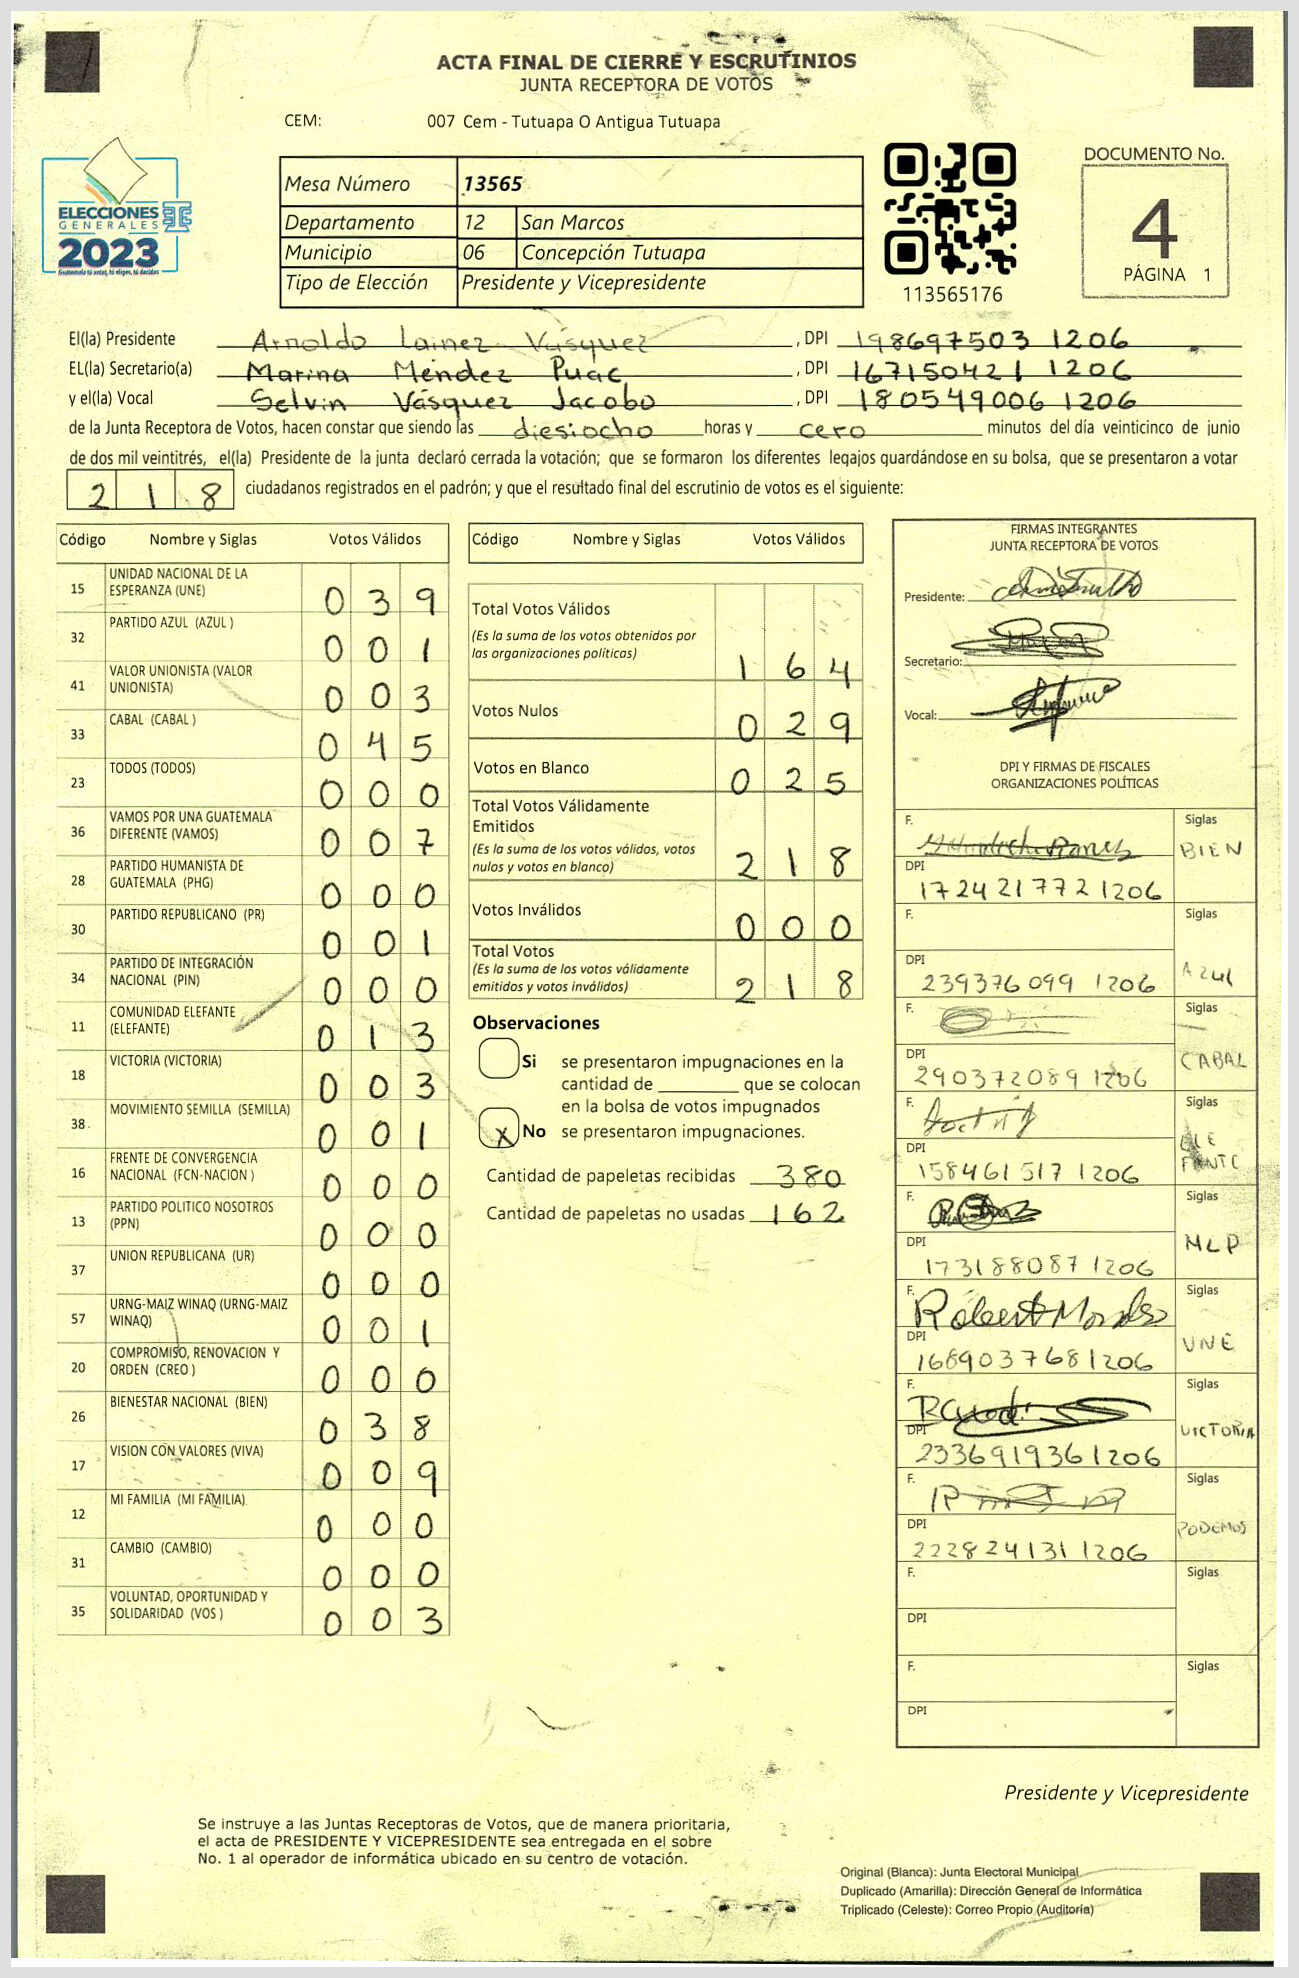 ACTA FINAL DE CIERRE Y ESCRUTINIOS
JUNTA RECEPTORA DE VOTOS
CEM: 007 Cem - Tutuapa O Antigua Tutuapa
ELECCIONES
GENERALES
2023
Guatemala tú votas, tú eliges, tú decides
Mesa Número 13565
Departamento 12 San Marcos
Municipio 06 Concepción Tutuapa
Tipo de Elección Presidente y Vicepresidente
113565176
DOCUMENTO No.
4
PÁGINA 1
El(la) Presidente Arnoldo Lainez Vásquez, DPI 198697503 1206
EL(la) Secretario(a) Marina Méndez Puac, DPI 167150421 1206
y el(la) Vocal Selvin Vásquez Jacobo, DPI 180549006 1206
de la Junta Receptora de Votos, hacen constar que siendo las diesiocho horas y cero minutos del día veinticinco de junio
de dos mil veintitrés, el(la) Presidente de la junta declaró cerrada la votación; que se formaron los diferentes legajos guardándose en su bolsa, que se presentaron a votar
218 ciudadanos registrados en el padrón; y que el resultado final del escrutinio de votos es el siguiente:
Código Nombre y Siglas Votos Válidos
15 UNIDAD NACIONAL DE LA
ESPERANZA (UNE) 039
32 PARTIDO AZUL (AZUL ) 001
41 VALOR UNIONISTA (VALOR
UNIONISTA) 003
33 CABAL (CABAL ) 045
23 TODOS (TODOS) 000
36 VAMOS POR UNA GUATEMALA
DIFERENTE (VAMOS) 007
28 PARTIDO HUMANISTA DE
GUATEMALA (PHG) 000
30 PARTIDO REPUBLICANO (PR) 001
34 PARTIDO DE INTEGRACIÓN
NACIONAL (PIN) 000
11 COMUNIDAD ELEFANTE
(ELEFANTE) 013
18 VICTORIA (VICTORIA) 003
38 MOVIMIENTO SEMILLA (SEMILLA) 001
16 FRENTE DE CONVERGENCIA
NACIONAL (FCN-NACION ) 000
13 PARTIDO POLITICO NOSOTROS
(PPN) 000
37 UNION REPUBLICANA (UR) 000
57 URNG-MAIZ WINAQ (URNG-MAIZ
WINAQ) 001
20 COMPROMISO, RENOVACION Y
ORDEN (CREO ) 000
26 BIENESTAR NACIONAL (BIEN) 038
17 VISION CON VALORES (VIVA) 009
12 MI FAMILIA (MI FAMILIA) 000
31 CAMBIO (CAMBIO) 000
35 VOLUNTAD, OPORTUNIDAD Y
SOLIDARIDAD (VOS ) 003
Código Nombre y Siglas Votos Válidos
Total Votos Válidos
(Es la suma de los votos obtenidos por
las organizaciones políticas) 164
Votos Nulos 029
Votos en Blanco 025
Total Votos Válidamente
Emitidos
(Es la suma de los votos válidos, votos
nulos y votos en blanco) 218
Votos Inválidos 000
Total Votos
(Es la suma de los votos válidamente
emitidos y votos inválidos) 218
Observaciones
Si se presentaron impugnaciones en la
cantidad de ________ que se colocan
en la bolsa de votos impugnados
X No se presentaron impugnaciones.
Cantidad de papeletas recibidas 380
Cantidad de papeletas no usadas 162
FIRMAS INTEGRANTES
JUNTA RECEPTORA DE VOTOS
Presidente:
Secretario:
Vocal:
DPI Y FIRMAS DE FISCALES
ORGANIZACIONES POLÍTICAS
F. Siglas
BIEN
DPI
172421772 1206
F. Siglas
Azul
DPI
239376099 1206
F. Siglas
CABAL
DPI
290372089 1206
F. Siglas
ELE
FANTE
DPI
158461517 1206
F. Siglas
MLP
DPI
173188087 1206
F. Siglas
Robert Morales
UNE
DPI
168903768 1206
F. Siglas
VICTORIA
DPI
233691936 1206
F. Siglas
PODEMOS
DPI
222824131 1206
F. Siglas
DPI
F. Siglas
DPI
Presidente y Vicepresidente
Se instruye a las Juntas Receptoras de Votos, que de manera prioritaria,
el acta de PRESIDENTE Y VICEPRESIDENTE sea entregada en el sobre
No. 1 al operador de informática ubicado en su centro de votación.
Original (Blanca): Junta Electoral Municipal
Duplicado (Amarilla): Dirección General de Informática
Triplicado (Celeste): Correo Propio (Auditoría)